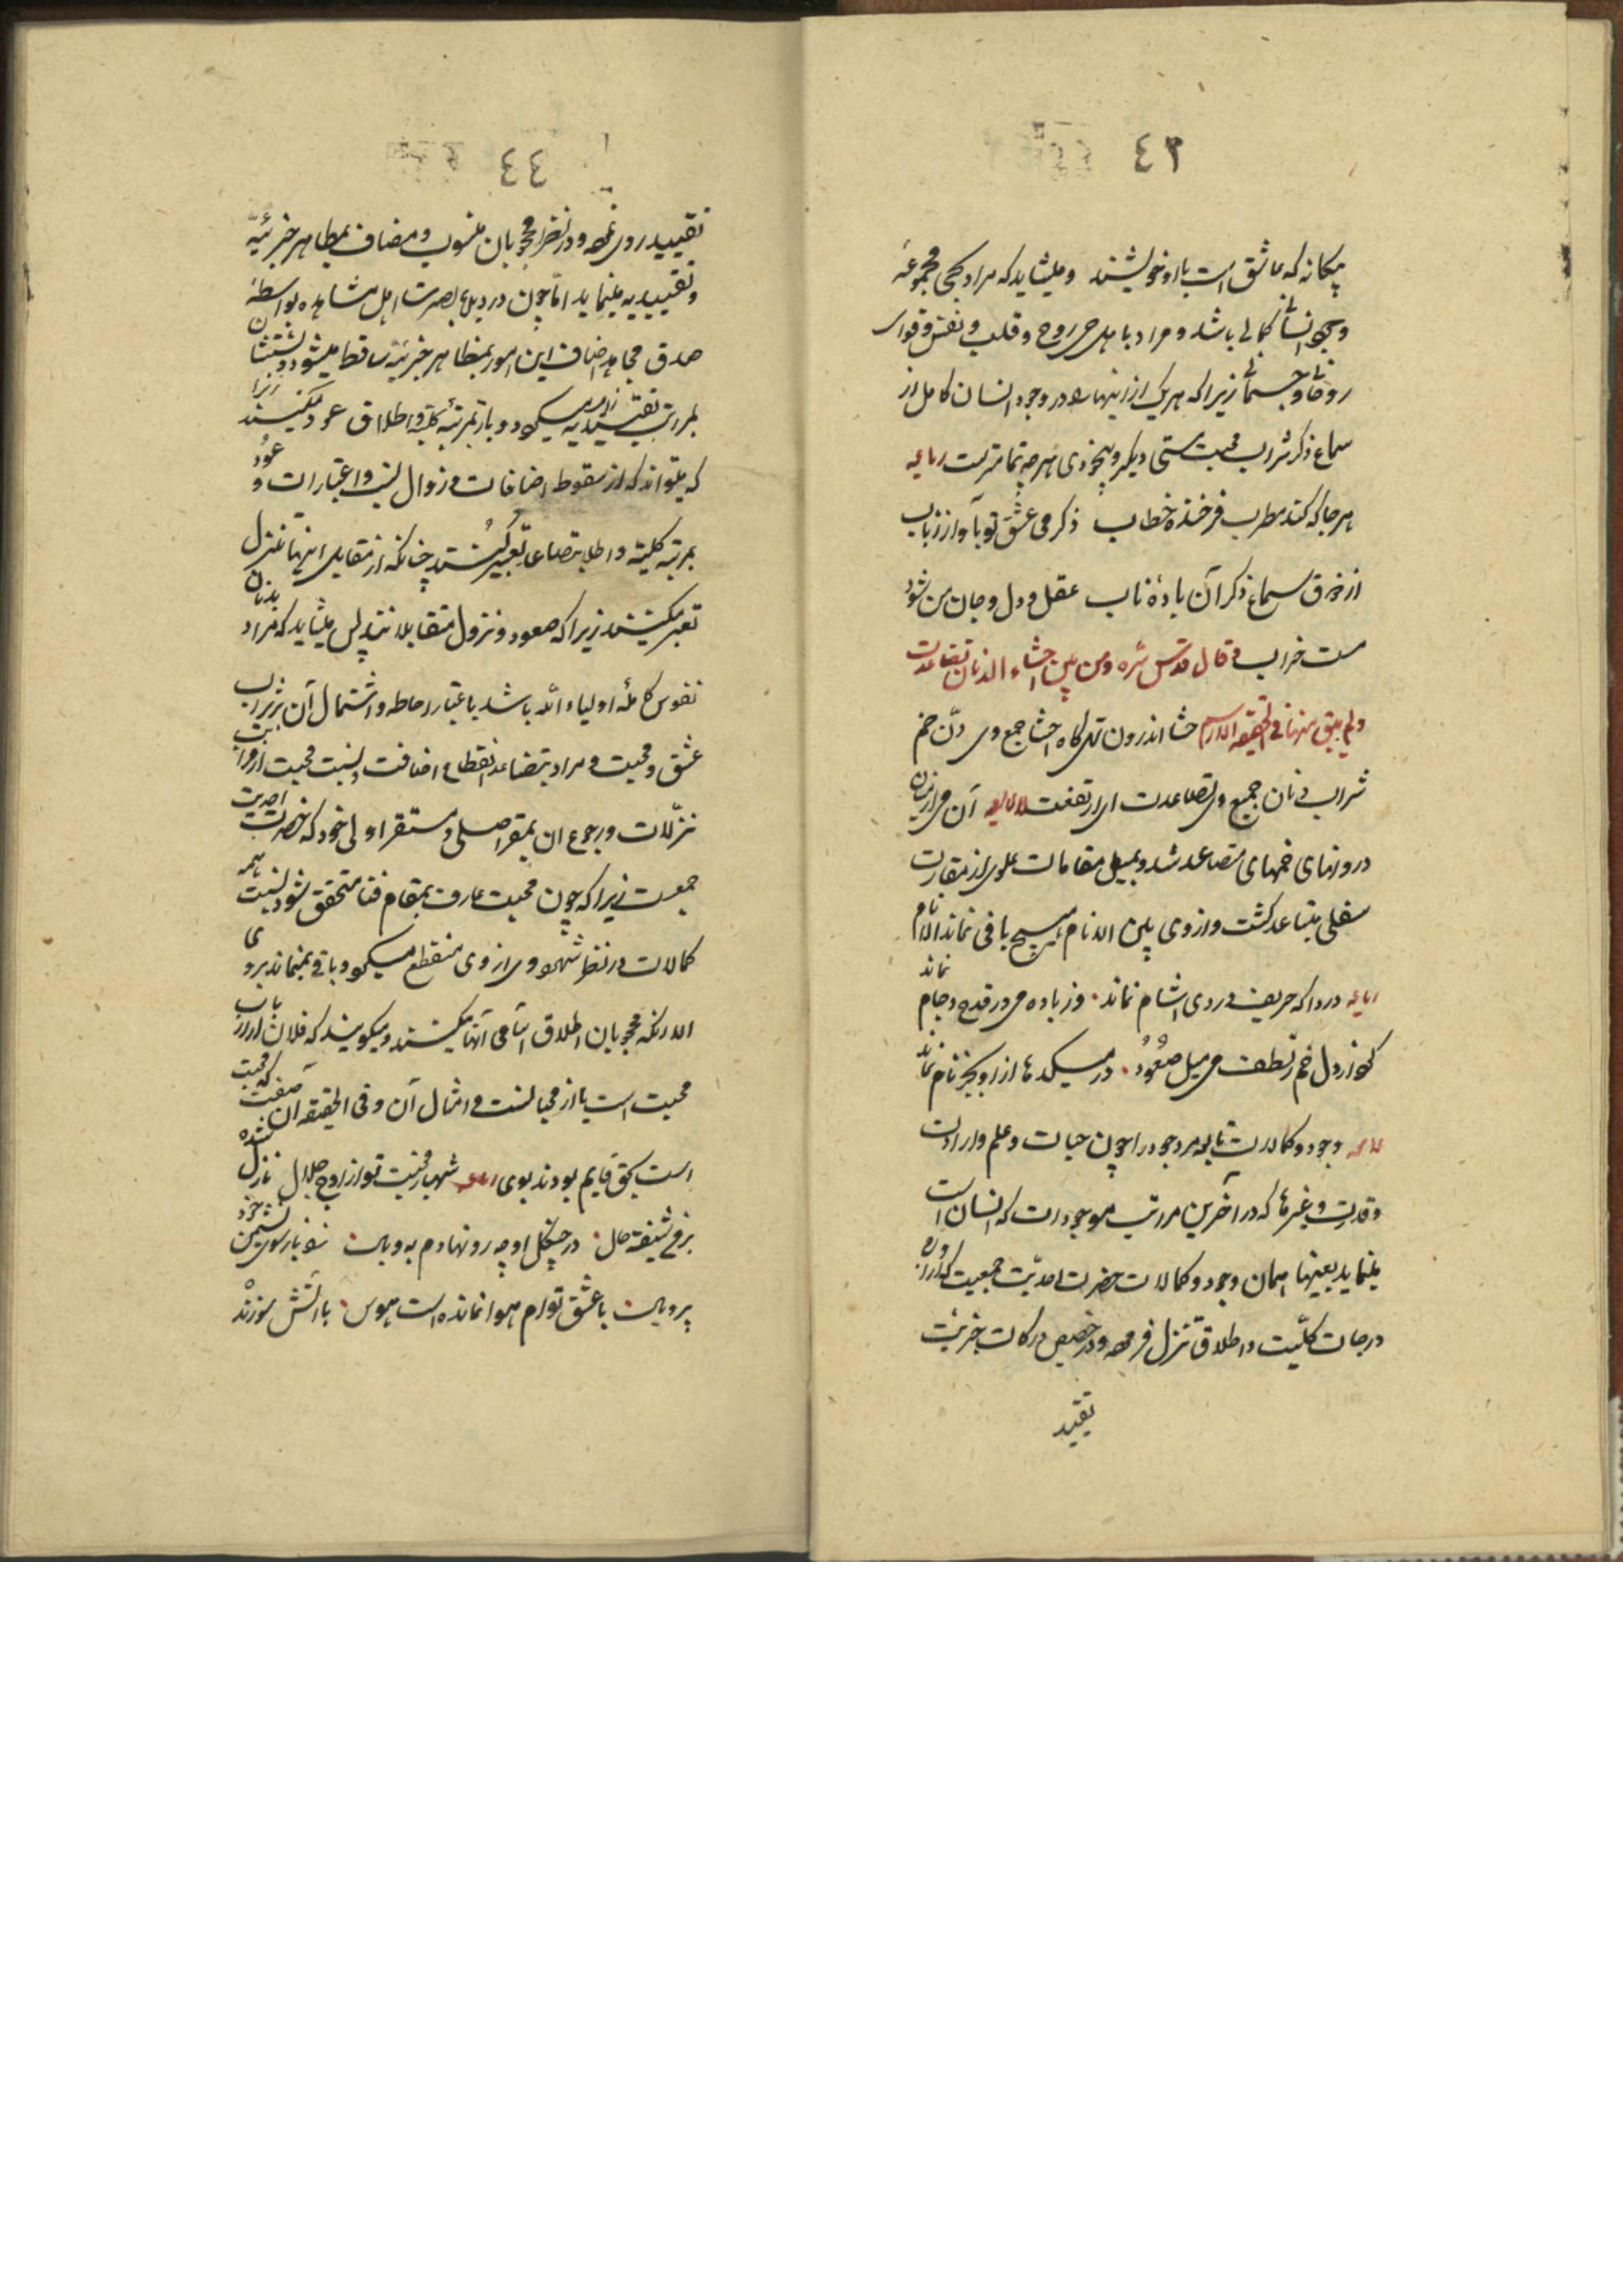 ٤٣
بیکانه که عاشق است با او خویشند و میشاید که مراد بحی مجموعهٔ
وجود انسانی کمالی باشد و مراد باهل حی روح و قلب و نفس و قوای
روحانی و جسمانی زیرا که هریک از اینها را در وجود انسان کامل از
سماع ذکر شراب محبت مستی دیگر و بیخودی هرچه تمامترست رباعیه
هرجا که کند مطرب فرخنده خطاب ذکر می عشق تو بآواز رباب
از ذوق سماع ذکر آن بادهٔ ناب عقل و دل و جان من شود
مست خراب و قال قدس سره ومن بین احشاء الدنان تصاعدت
ولم یبق منها فی الحقیقة الا اسم حشا اندرون تهی کاه احشا جمع وی دن خم
شراب دنان جمع وی تصاعدت ای ارتفعت آن می از میان
درونهای خمهای متصاعد شد و بمیل مقامات علوی از مقارت
سفلی متباعد کشت و از وی بین الانام هیچ باقی نماند الا نام
رباعیه دردا که حریف دردی اشام نماند وز باده می در قدح و جام
نماند
کو از دل خم ز لطف می میل صعود در میکدها از او بجز نام نماند
وجود و کمالات تابع مر وجود را چون حیات و علم و ارادت
و قدرت و غیرها که در آخرین مراتب موجودات که انسان است
مینماید بعینها همان وجود و کمالات حضرت احدیت جمعیت که از
درجات کلّیت و اطلاق تنزل فرموده و در حضیض درکات جزئیت
تقیید
٤٤
تقیید روی نموده و در نظر محجوبان منسوب و مضاف بمظاهر جزئیّه
و تقییدیه مینماید امّا چون در دیدهٔ بصیرت اهل مشاهده بواسطهٔ
صدق مجاهده اضافت این امور بمظاهر جزئیّه ساقط میشود و
بمراتب تقییدیه میکردد و باز بمرتبهٔ کلیّه و اطلاق عود میکنند
که میتواند که از سقوط اضافات و زوال نسب و اعتبارات و عود
بمرتبه کلیّه و اطلاق بتصاعد تعبیر کنند چنانکه از مقابل اینها بتنزل
تعبیر میکنند زیرا که صعود و نزول متقابلانند پس میشاید که مراد بدنان
نفوس کاملهٔ اولیاء الله باشد باعتبار احاطه و اشتمال آن بر شراب
عشق و محبت و مراد بتصاعد انقطاع اضافت و نسبت محبت از
تنزّلات و رجوع ان بمقر اصلی و مستقر اولی خود که حضرت احدیت
جمعست زیرا که چون محبت عارف بمقام فنا متحقق شود نسبت همه
کمالات در نظر شهود وی از وی منقطع میکردد و باقی نمیماند بروی
الا آنکه محجوبان اطلاق اسامی آنها میکنند و میکویند که فلان از ارباب
محبت است یا از محبانست و امثال آن و فی الحقیقه ان صفت که محبت
است بحق قایم بودند بوی شهباز محبت تو از اوج جلال نازل شده
بر مرغ شیفته حال در چنکل او چه رو نهادم بوبال شد باز بسوی نشیمن خود
پر و بال با عشق توام هوا نمانده است هوس با آتش سوزنده